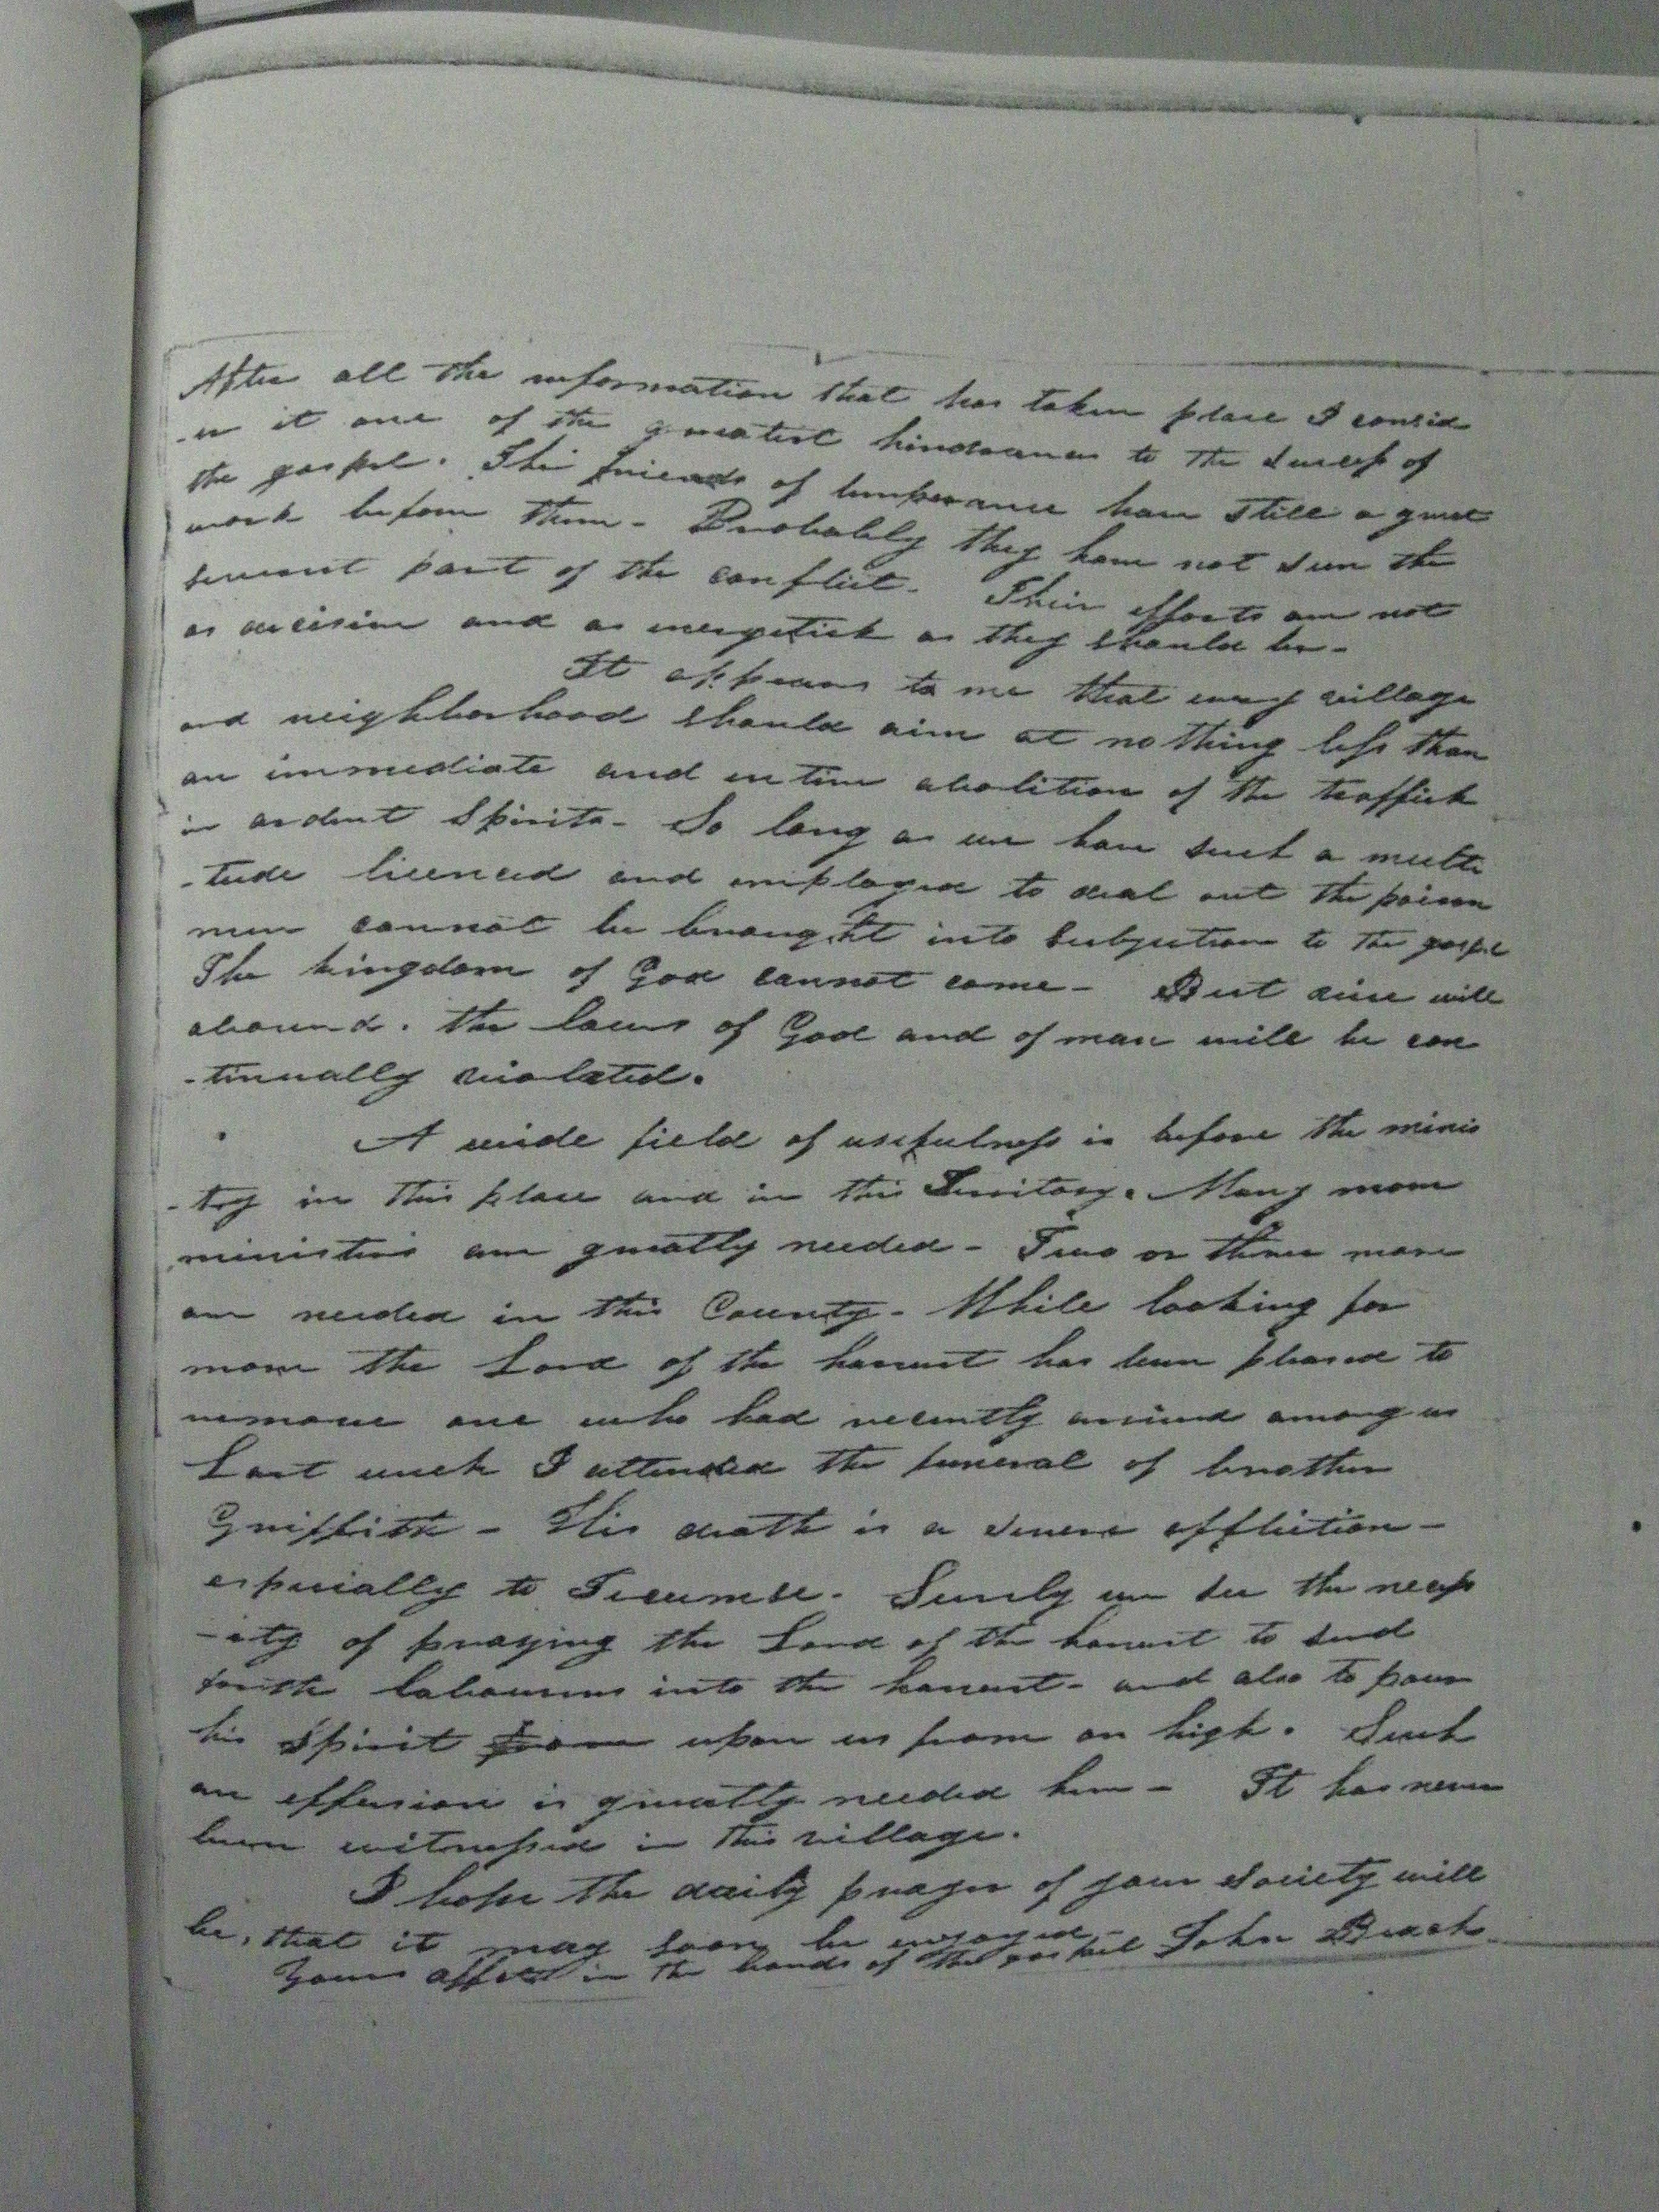 After all the reformation that has taken place I consid
-er it one of the greatest hindrances to the success of
the gospel. The friends of temperance have still a great
work before them - Probably they have not seen the
severest part of the conflict. Their efforts are not
as decisive and as energetick as they should be -
It appears to me that every village
and neighborhood should aim at nothing less than
an immediate and entire abolition of the traffick
in ardent spirits - So long as we have such a multi
-tude licenced and employed to deal out the poison
men cannot be brought into subjection to the gospel
The kingdom of God cannot come - But vice will
abound. the laws of God and of man will be con
-tinually violated.
A wide field of usefulness is before the minis
-try in this place and in this Territory. Many more
ministers are greatly needed - Two or three more
are needed in this County - While looking for
more the Lord of the harvest has been pleased to
remove one who had recently arrived among us
Last week I attended the funeral of brother
Griffith - His death is a severe affliction -
especially to Tecumse. Surely we see the necess
-ity of praying the Lord of the harvest to send
forth labourers into the harvest - and also to pour
his Spirit from upon us from on high. Such
an effusion is greatly needed here - It has never
been witnessed in this village.
I hope the daily prayer of your Society will
be, that it may soon be enjoyed -
Yours affect in the bonds of the gospel John Beach